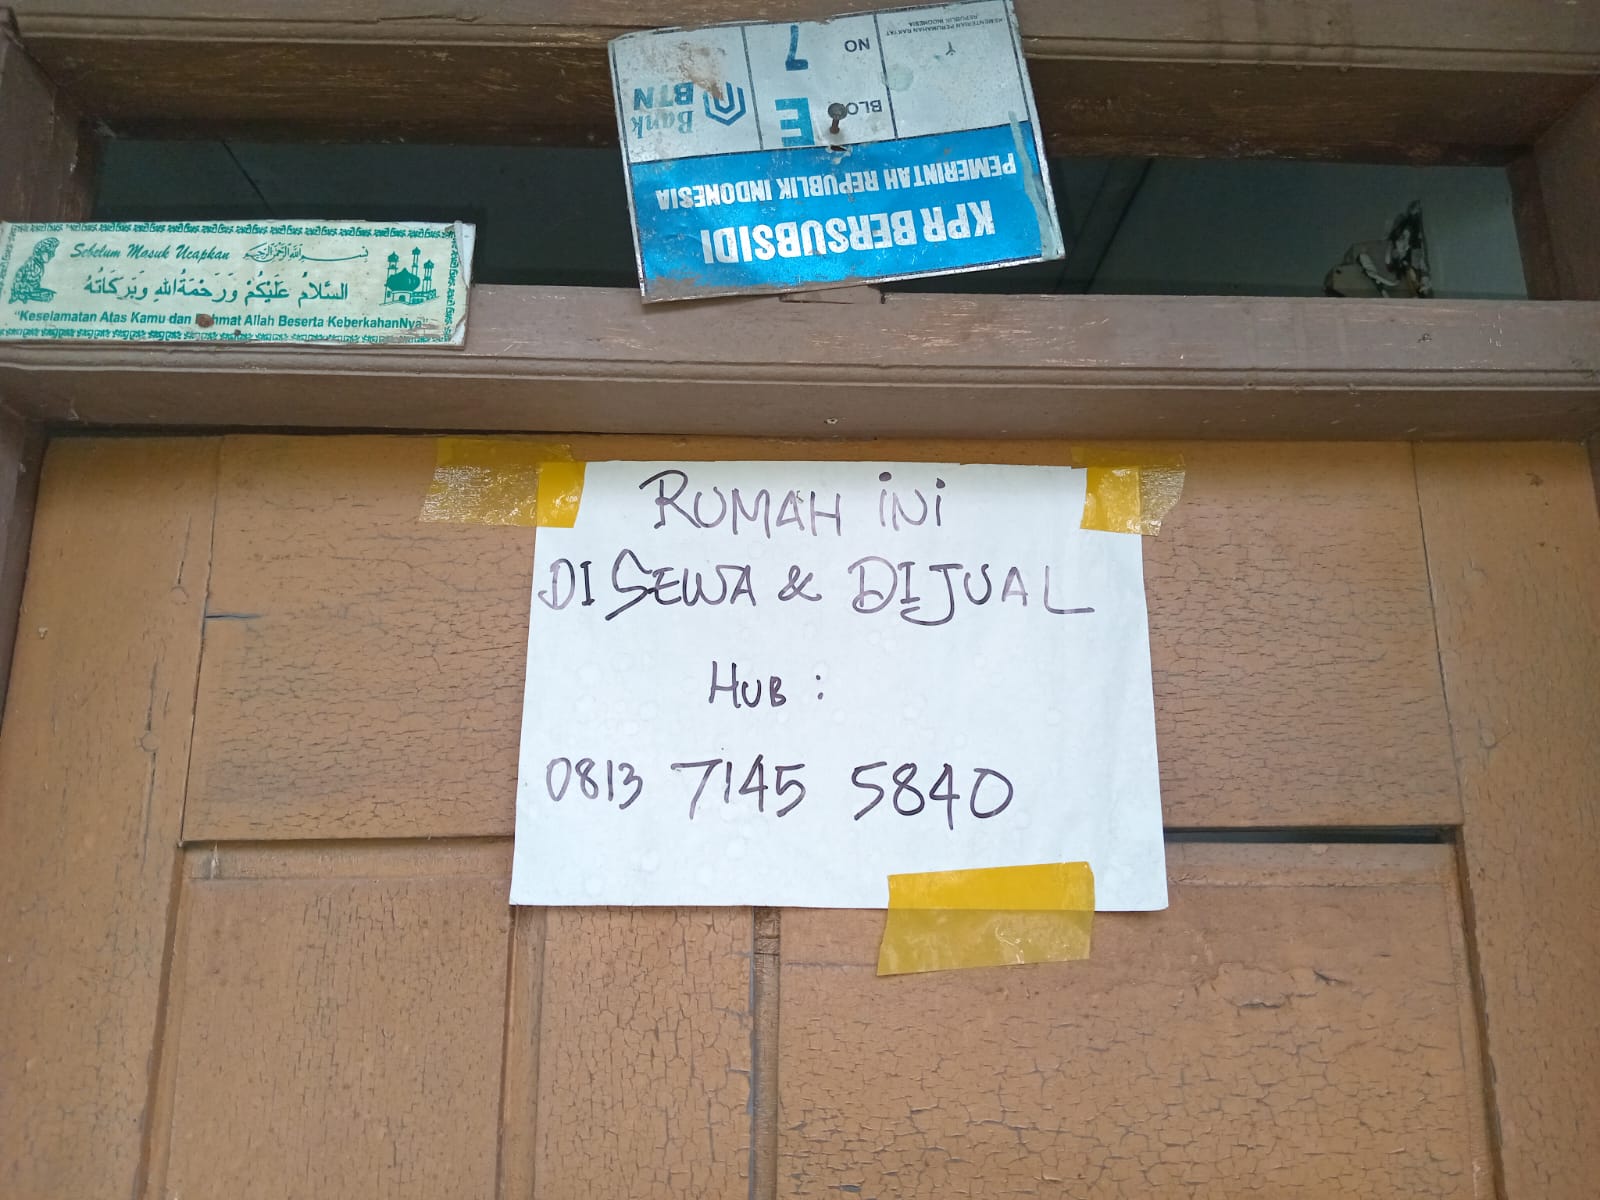 KEMENTERIAN PERUMAHAN RAKYAT
REPUBLIK INDONESIA
NO
7
BLOK
E
Bank
BTN
KPR BERSUBSIDI
PEMERINTAH REPUBLIK INDONESIA
Sebelum Masuk Ucapkan
بسم الله الرحمن الرحيم
السَّلَامُ عَلَيْكُمْ وَرَحْمَةُ اللهِ وَبَرَكَاتُهُ
"Keselamatan Atas Kamu dan Rahmat Allah Beserta KeberkahanNya"
RUMAH INI
DI SEWA & DIJUAL
HUB :
0813 7145 5840